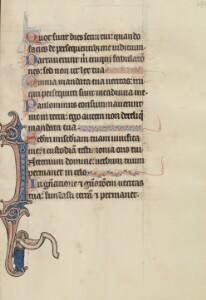 Quot sunt dies serui tui: quando
facies de persequentib; me iudicium.
Narrauerunt m iniqui fabulatio
nes: sed non ut lex tua
Omnia mandata tua ueritas: in
iqui persecuti sunt me adiuua me.
Paulominus consummauerunt
me in terra: ego autem non dereliq
mandata tua
Scdm misediam tuam uiuifica
me: et custodia testimonia oris tui.
In eternum domine: uerbum tuum
permanet in celo.
In gñatione et gñatioem ueritas
tua: fundasti terram et permanet.